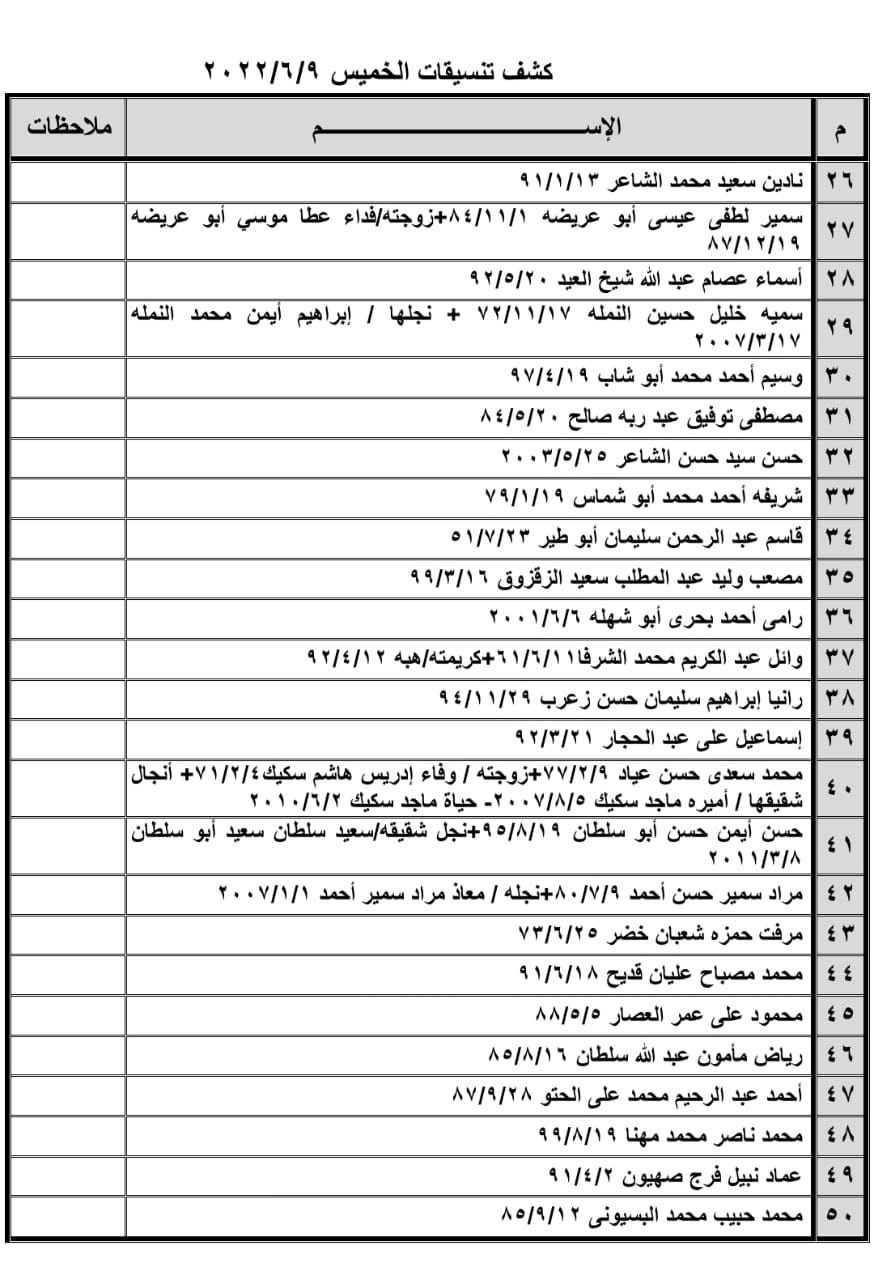 كشف تنسيقات الخميس ٢٠٢٢/٦/٩
م الإســـــــم ملاحظات
٢٦ نادين سعيد محمد الشاعر ٩١/١/١٣
٢٧ سمير لطفى عيسى أبو عريضه ٨٤/١١/١+زوجته/فداء عطا موسي أبو عريضه
٨٧/١٢/١٩
٢٨ أسماء عصام عبد الله شيخ العيد ٩٢/٥/٢٠
٢٩ سميه خليل حسين النمله ٧٢/١١/١٧ + نجلها / إبراهيم أيمن محمد النمله
٢٠٠٧/٣/١٧
٣٠ وسيم أحمد محمد أبو شاب ٩٧/٤/١٩
٣١ مصطفى توفيق عبد ربه صالح ٨٤/٥/٢٠
٣٢ حسن سيد حسن الشاعر ٢٠٠٣/٥/٢٥
٣٣ شريفه أحمد محمد أبو شماس ٧٩/١/١٩
٣٤ قاسم عبد الرحمن سليمان أبو طير ٥١/٧/٢٣
٣٥ مصعب وليد عبد المطلب سعيد الزقزوق ٩٩/٣/١٦
٣٦ رامى أحمد بحرى أبو شهله ٢٠٠١/٦/٦
٣٧ وائل عبد الكريم محمد الشرفا٦١/٦/١١+كريمته/هبه ٩٢/٤/١٢
٣٨ رانيا إبراهيم سليمان حسن زعرب ٩٤/١١/٢٩
٣٩ إسماعيل على عبد الحجار ٩٢/٣/٢١
٤٠ محمد سعدى حسن عياد ٧٧/٢/٩+زوجته / وفاء إدريس هاشم سكيك٧١/٢/٤+ أنجال
شقيقها / أميره ماجد سكيك ٢٠٠٧/٨/٥- حياة ماجد سكيك ٢٠١٠/٦/٢
٤١ حسن أيمن حسن أبو سلطان ٩٥/٨/١٩+نجل شقيقه/سعيد سلطان سعيد أبو سلطان
٢٠١١/٣/٨
٤٢ مراد سمير حسن أحمد ٨٠/٧/٩+نجله / معاذ مراد سمير أحمد ٢٠٠٧/١/١
٤٣ مرفت حمزه شعبان خضر ٧٣/٦/٢٥
٤٤ محمد مصباح عليان قديح ٩١/٦/١٨
٤٥ محمود على عمر العصار ٨٨/٥/٥
٤٦ رياض مأمون عبد الله سلطان ٨٥/٨/١٦
٤٧ أحمد عبد الرحيم محمد على الحتو ٨٧/٩/٢٨
٤٨ محمد ناصر محمد مهنا ٩٩/٨/١٩
٤٩ عماد نبيل فرج صهيون ٩١/٤/٢
٥٠ محمد حبيب محمد البسيونى ٨٥/٩/١٢